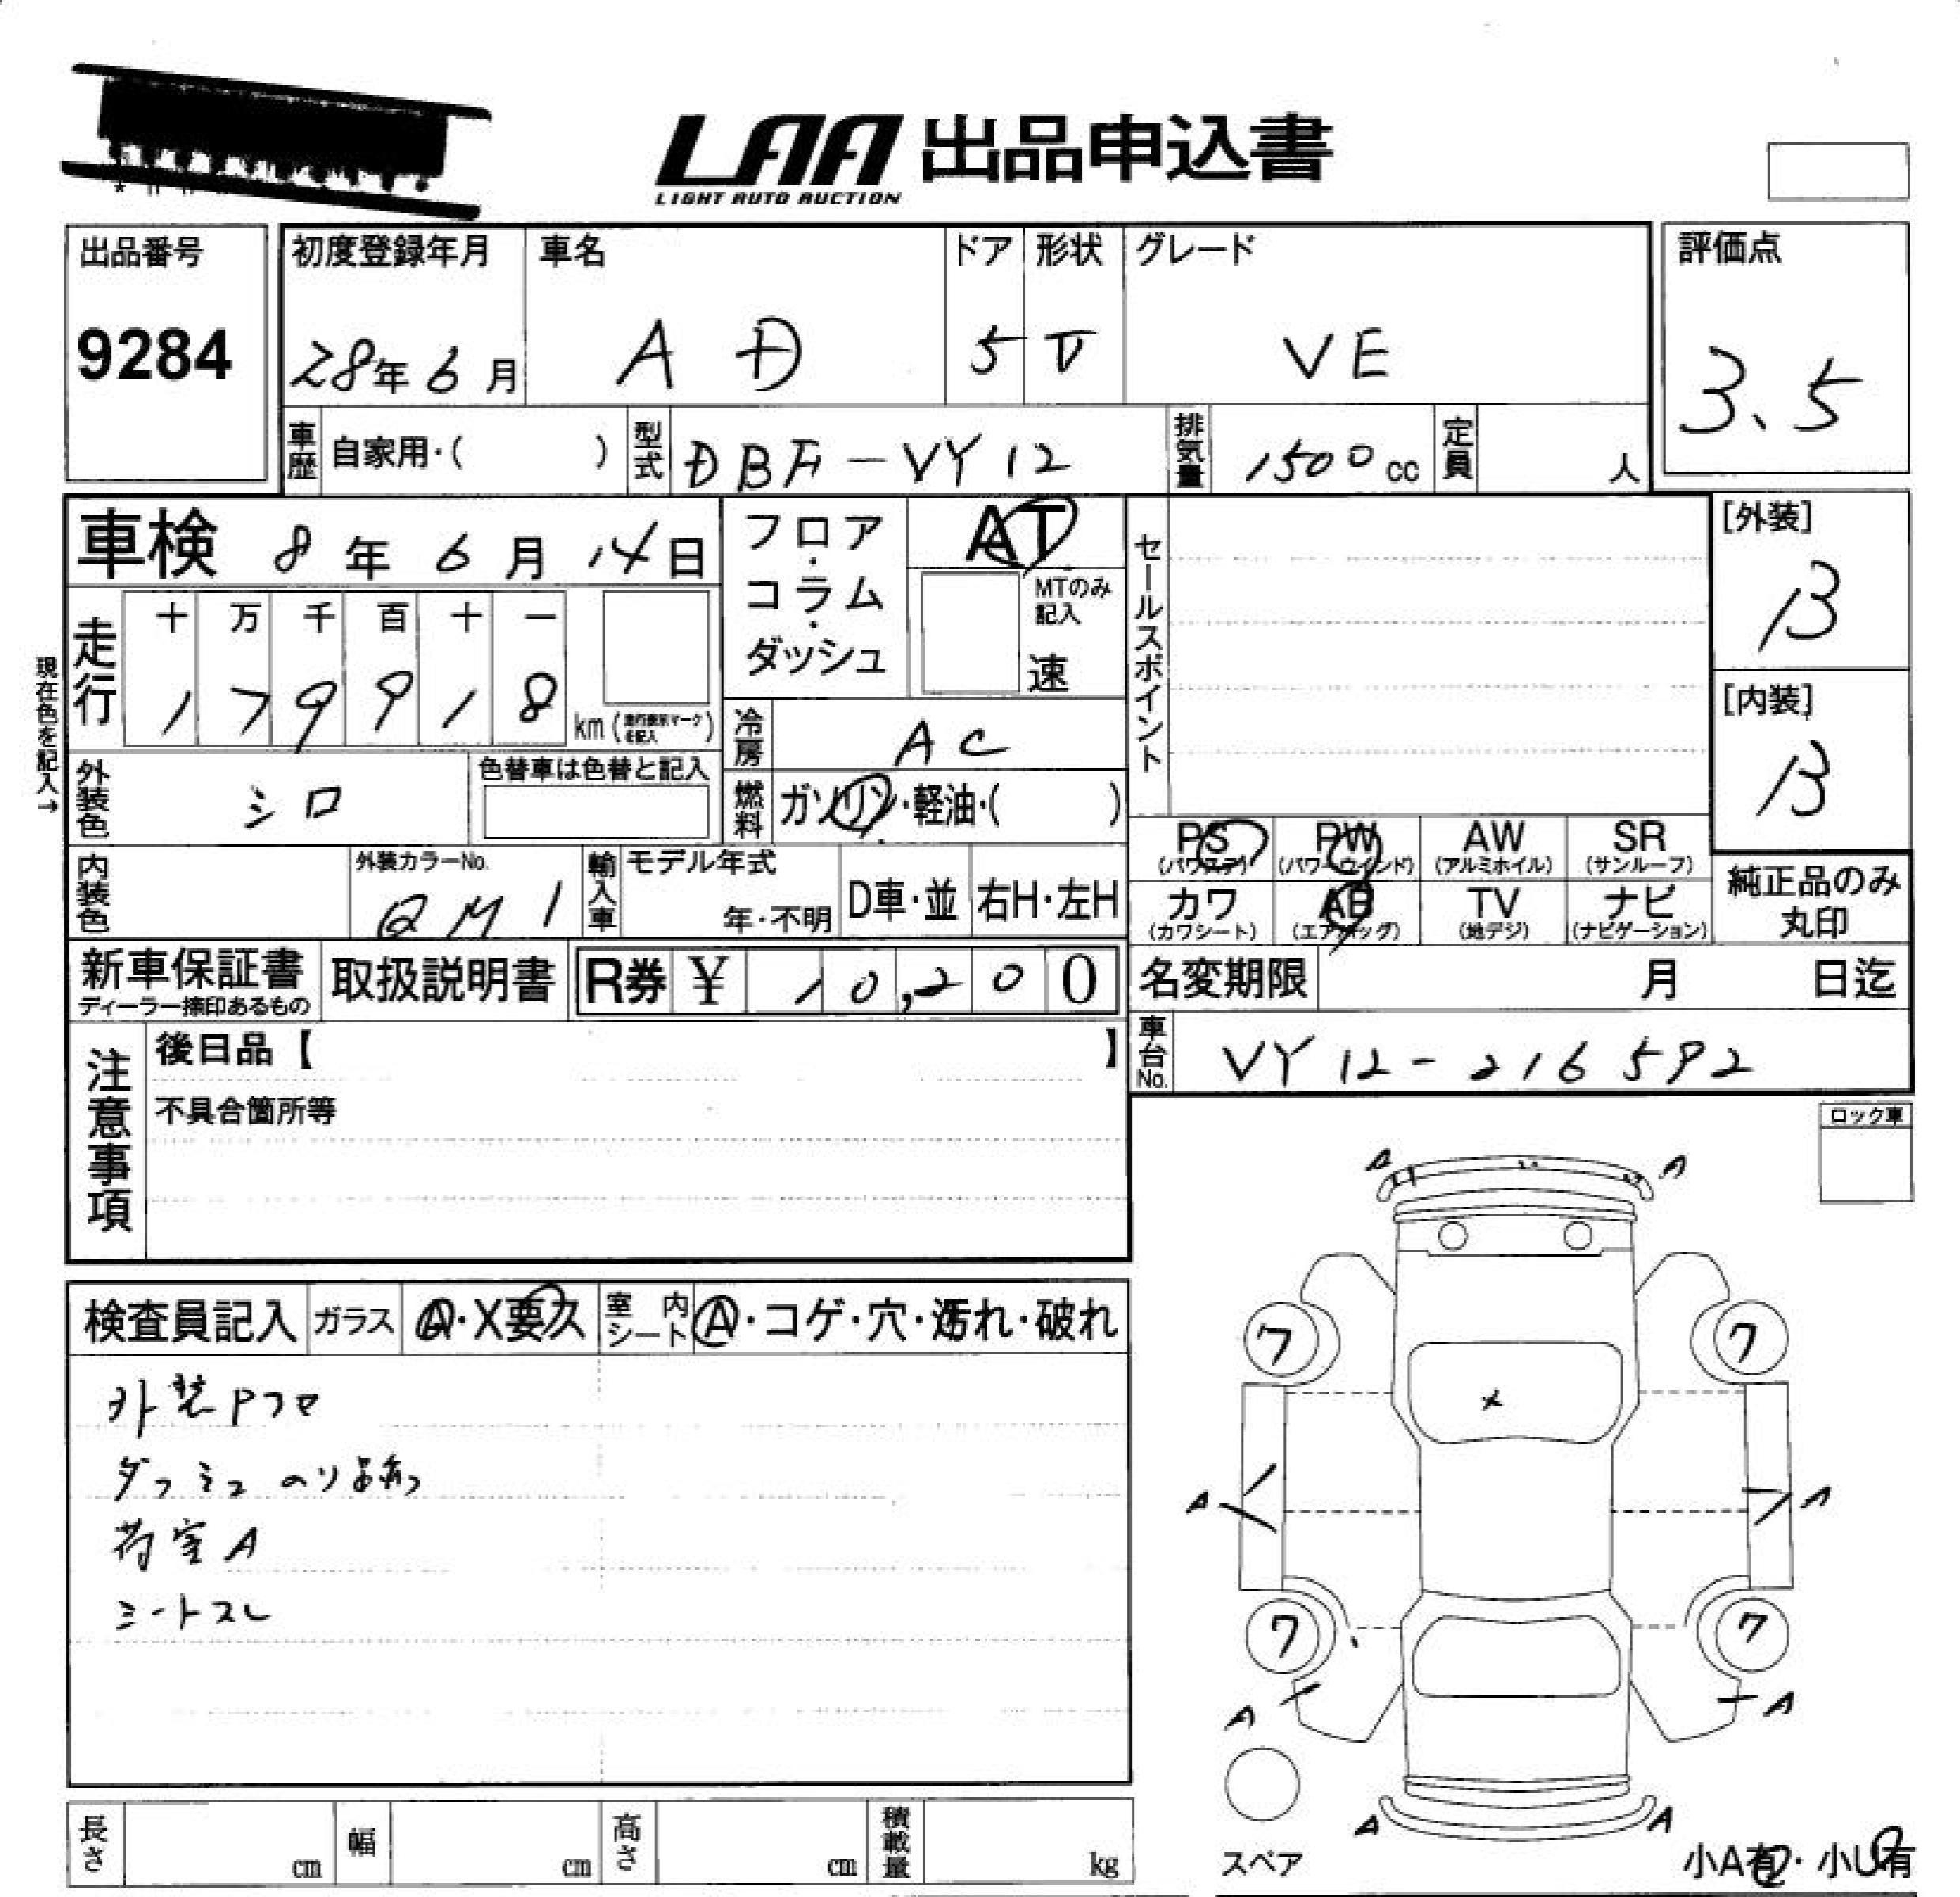 LAA 出品申込書
LIGHT AUTO AUCTION
出品番号
9284
初度登録年月
28年 6月
車名
AD
ドア
5
形状
V
グレード
VE
評価点
3.5
車歴 自家用・( )
型式 DBF-VY12
排気量 1500cc
定員 人
車検 8年 6月 14日
フロア・コラム・ダッシュ
AT
MTのみ記入
速
セールスポイント
[外装]
B
[内装]
B
現在色を記入→
走行
十 万 千 百 十 一
1 7 9 9 1 8 km (走行表示マークを記入)
冷房 AC
外装色 シロ
色替車は色替と記入
燃料 ガソリン・軽油・( )
PS (パワステ)
PW (パワーウインド)
AW (アルミホイル)
SR (サンルーフ)
カワ (カワシート)
AB (エアバッグ)
TV (地デジ)
ナビ (ナビゲーション)
純正品のみ丸印
内装色
外装カラーNo.
QM1
輸入車
モデル年式
年・不明
D車・並
右H・左H
新車保証書
ディーラー捺印あるもの
取扱説明書
R券 ¥ 10,200
名変期限 月 日迄
車台No. VY12-216592
注意事項
後日品【 】
不具合箇所等
ロック車
検査員記入
ガラス A・X要ス
室内シート A・コゲ・穴・汚れ・破れ
外装Pフロ
ダッシュ のり
荷室A
シートスレ
A A
ワ ワ
X
A A
ワ ワ
A A
A A
スペア
小A有・小U有
長さ cm
幅 cm
高さ cm
積載量 kg